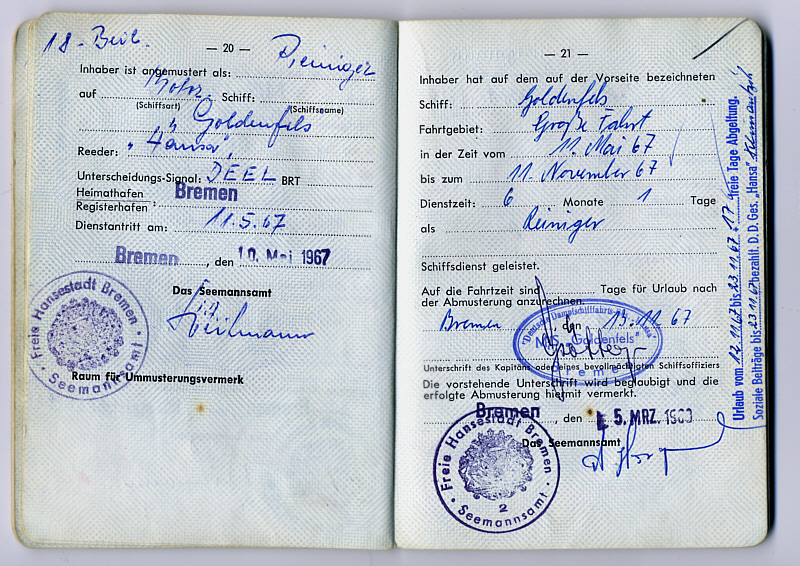 18. Beib.
— 20 —
Inhaber ist angemustert als: Reiniger
auf Motor Schiff:
(Schiffsart) (Schiffsname)
" Goldenfels
Reeder: "Hansa"
Unterscheidungs-Signal: DEEL BRT
Heimathafen
Registerhafen : Bremen
Dienstantritt am: 11.5.67
Bremen, den 10. Mai 1967
Das Seemannsamt
Freie Hansestadt Bremen
Seemannsamt
Raum für Ummusterungsvermerk
— 21 —
Inhaber hat auf dem auf der Vorseite bezeichneten
Schiff: Goldenfels
Fahrtgebiet: Große Fahrt
in der Zeit vom 11. Mai 67
bis zum 11. November 67
Dienstzeit: 6 Monate 1 Tage
als Reiniger
Schiffsdienst geleistet.
Auf die Fahrtzeit sind Tage für Urlaub nach
der Abmusterung anzurechnen.
Bremen den 13.11.67
"Deutsche Dampfschiffahrts-Ges. „Hansa"
M/S „Goldenfels"
Bremen
Unterschrift des Kapitäns oder eines bevollmächtigten Schiffsoffiziers
Die vorstehende Unterschrift wird beglaubigt und die
erfolgte Abmusterung hiermit vermerkt.
Bremen, den 5. MRZ.
Das Seemannsamt
Freie Hansestadt Bremen
2
Seemannsamt
Urlaub vom 12.11.67 bis 23.11.67 freie Tage Abgeltung.
Soziale Beiträge bis 23.11.67 bezahlt. D. D. Ges. „Hansa"